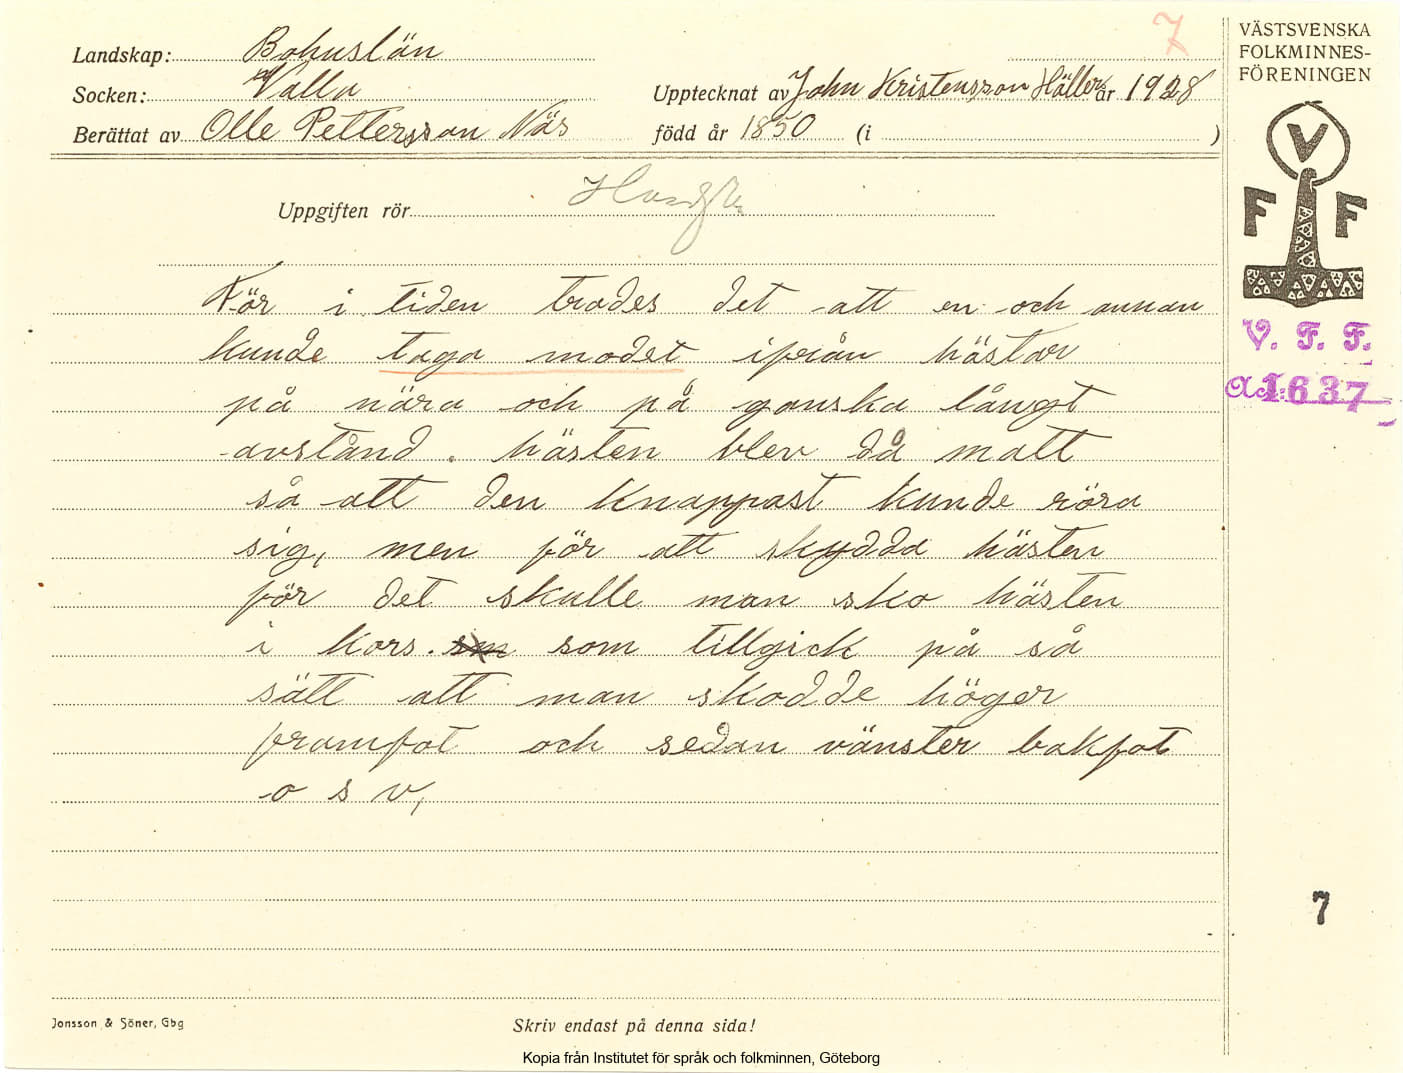 7
Landskap: Bohuslän
Socken: Valla
Upptecknat av John Kristensson Hällers år 1928
Berättat av Olle Pettersson Näs
född år 1850 (i )
Uppgiften rör
För i tiden trodes det att en och annan
kunde taga modet ifrån hästar
på nära och på ganska långt
avstånd. hästen blev då matt
så att den knappast kunde röra
sig, men för att skydda hästen
för det skulle man sko hästen
i kors. som tillgick på så
sätt att man skodde höger
framfot och sedan vänster bakfot
o s v,
VÄSTSVENSKA
FOLKMINNES-
FÖRENINGEN
V
F F
V. F. F.
1637
7
Jonsson & Söner, Gbg
Skriv endast på denna sida!
Kopia från Institutet för språk och folkminnen, Göteborg